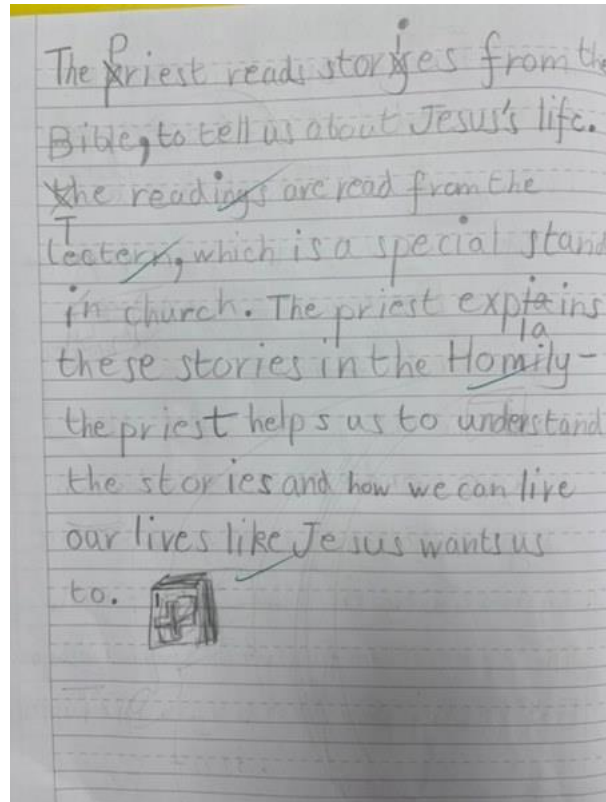 The Priest reads stories from the
Bible, to tell us about Jesus's life.
The readings are read from the
lectern, which is a special stand
in church. The priest explains
these stories in the Homily-
the priest helps us to understand
the stories and how we can live
our lives like Jesus wants us
to.